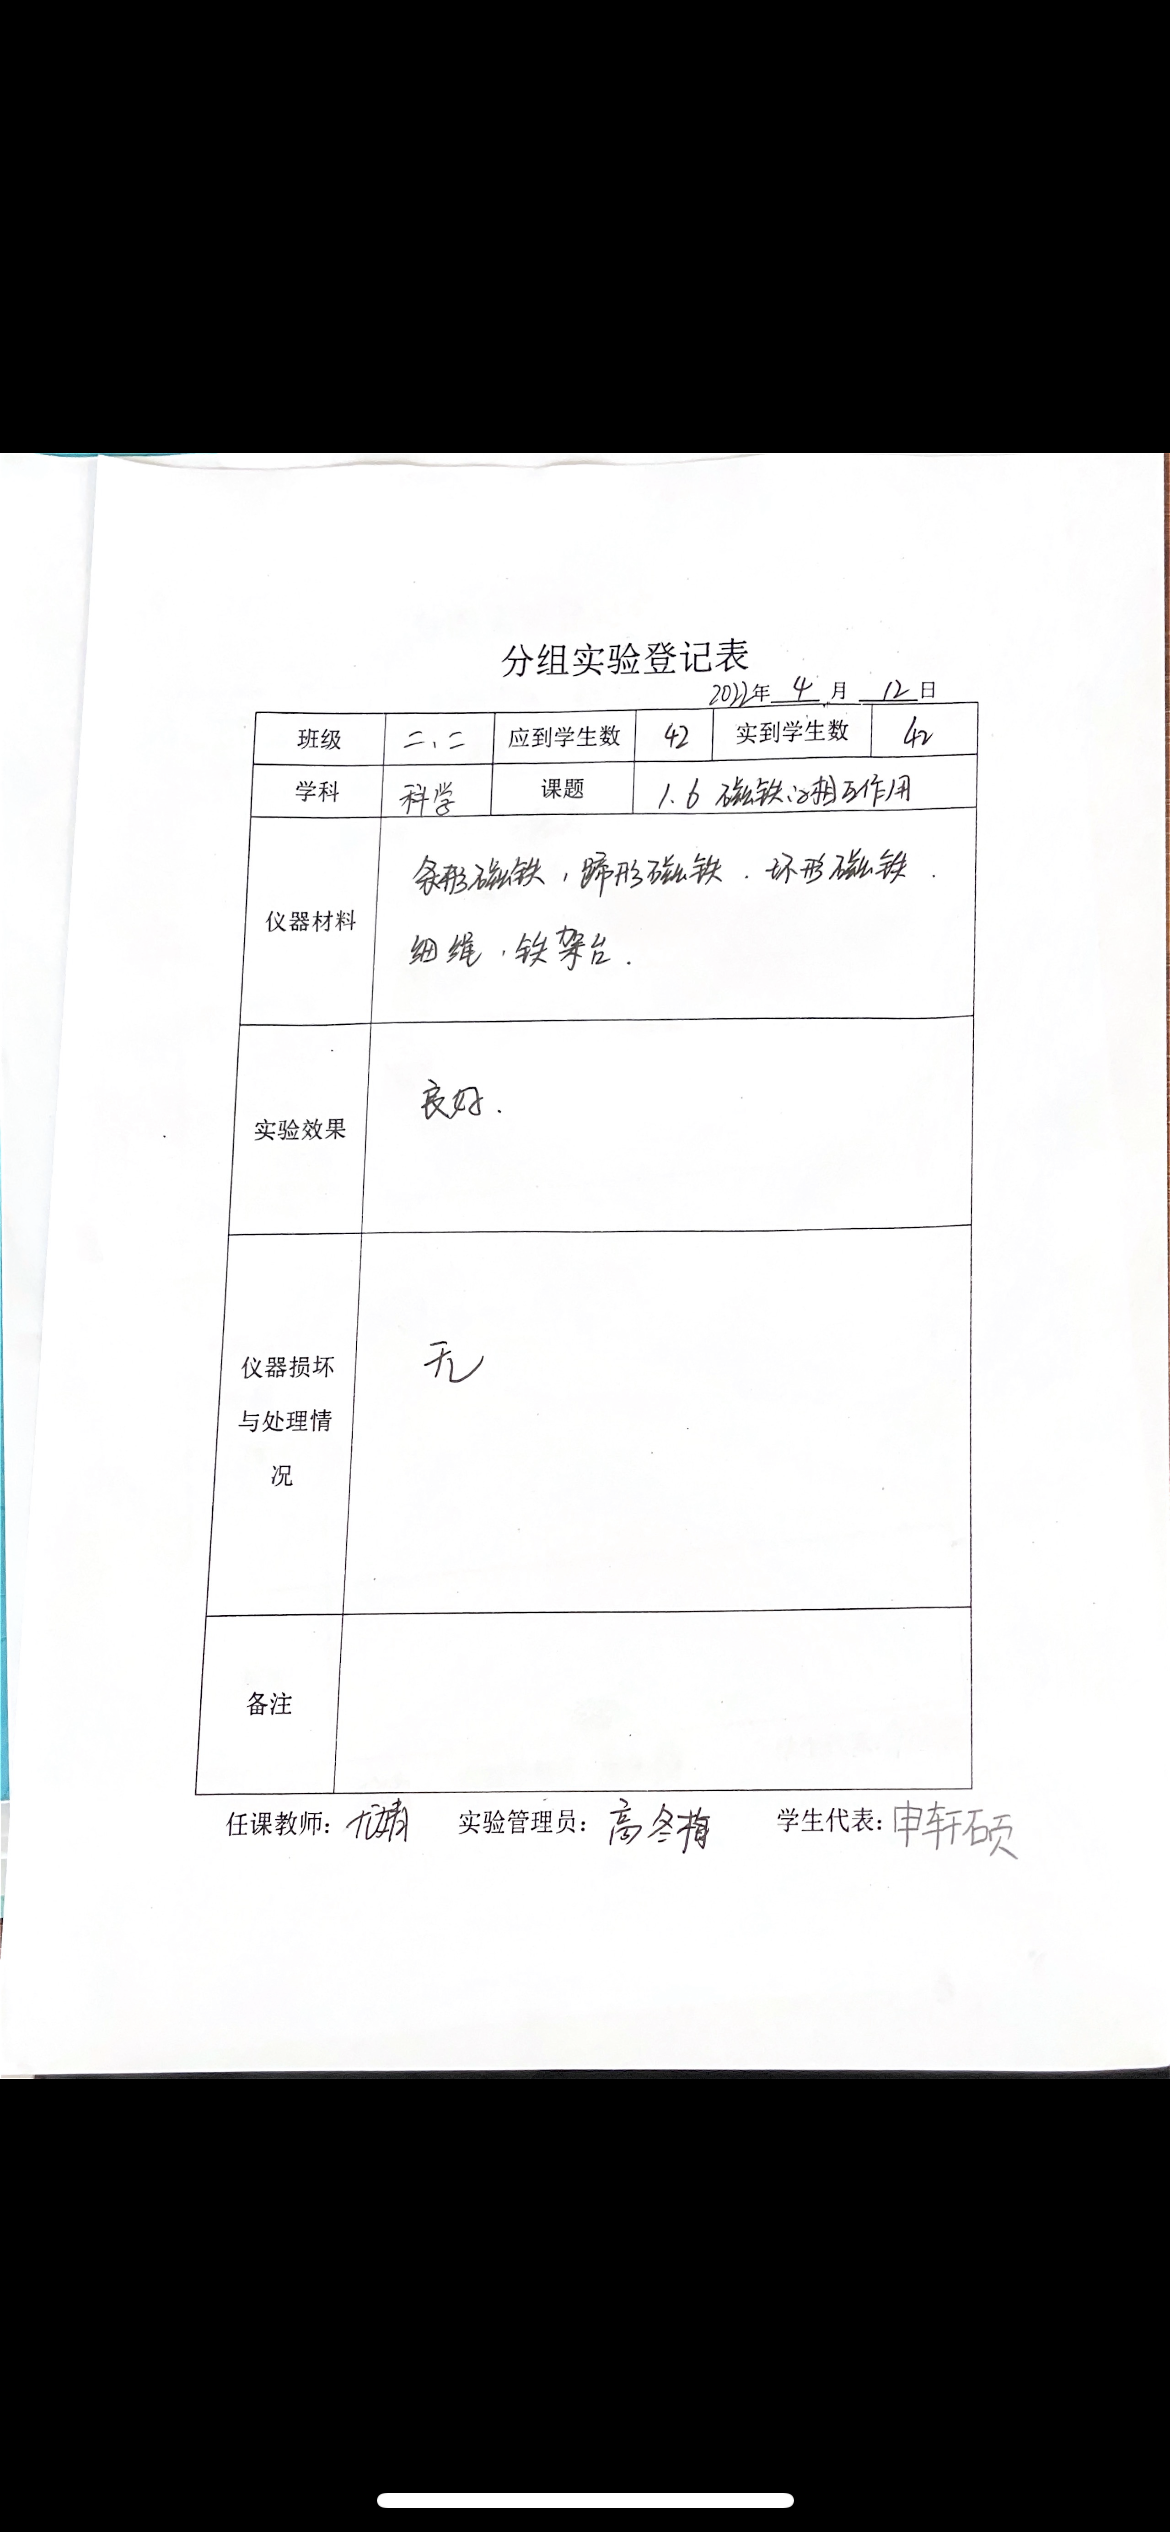 分组实验登记表
2022年 4 月 12 日
班级 二、二 应到学生数 42 实到学生数 42
学科 科学 课题 1.6 磁铁的相互作用
条形磁铁，蹄形磁铁．环形磁铁．
仪器材料
细绳，铁架台．
良好．
实验效果
无
仪器损坏
与处理情
况
备注
任课教师：尤婧 实验管理员：高冬梅 学生代表：申轩硕